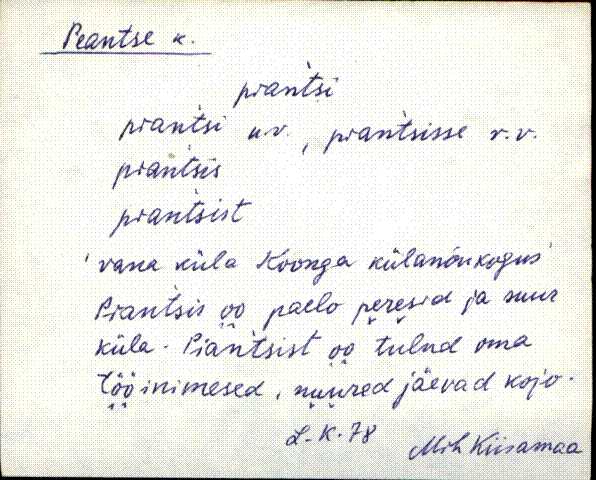 Peantse k.
piantsi
piantsi u.v., piantsisse r.v.
piantsis
piantsist
'vana küla Koonga külanõukogus'
Piantsis o̤o̤ paelo pe̤re̤sid ja suur
küla. Piantsist o̤o̤ tulnd oma
tö̤ö̤inimesed, nṳṳred jäevad kojo.
L-K. 78
Mih Kiisamaa